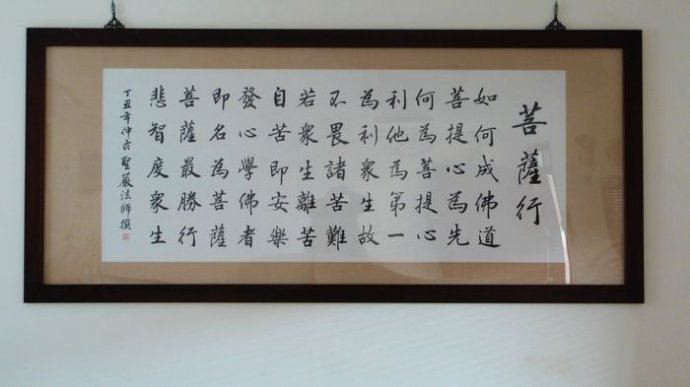 菩薩行
如何成佛道
菩提心為先
何為菩提心
利他為第一
為利眾生故
不畏諸苦難
若眾生離苦
自苦即安樂
發心學佛者
即名為菩薩
菩薩最勝行
悲智度眾生
丁丑年仲冬聖嚴法師撰